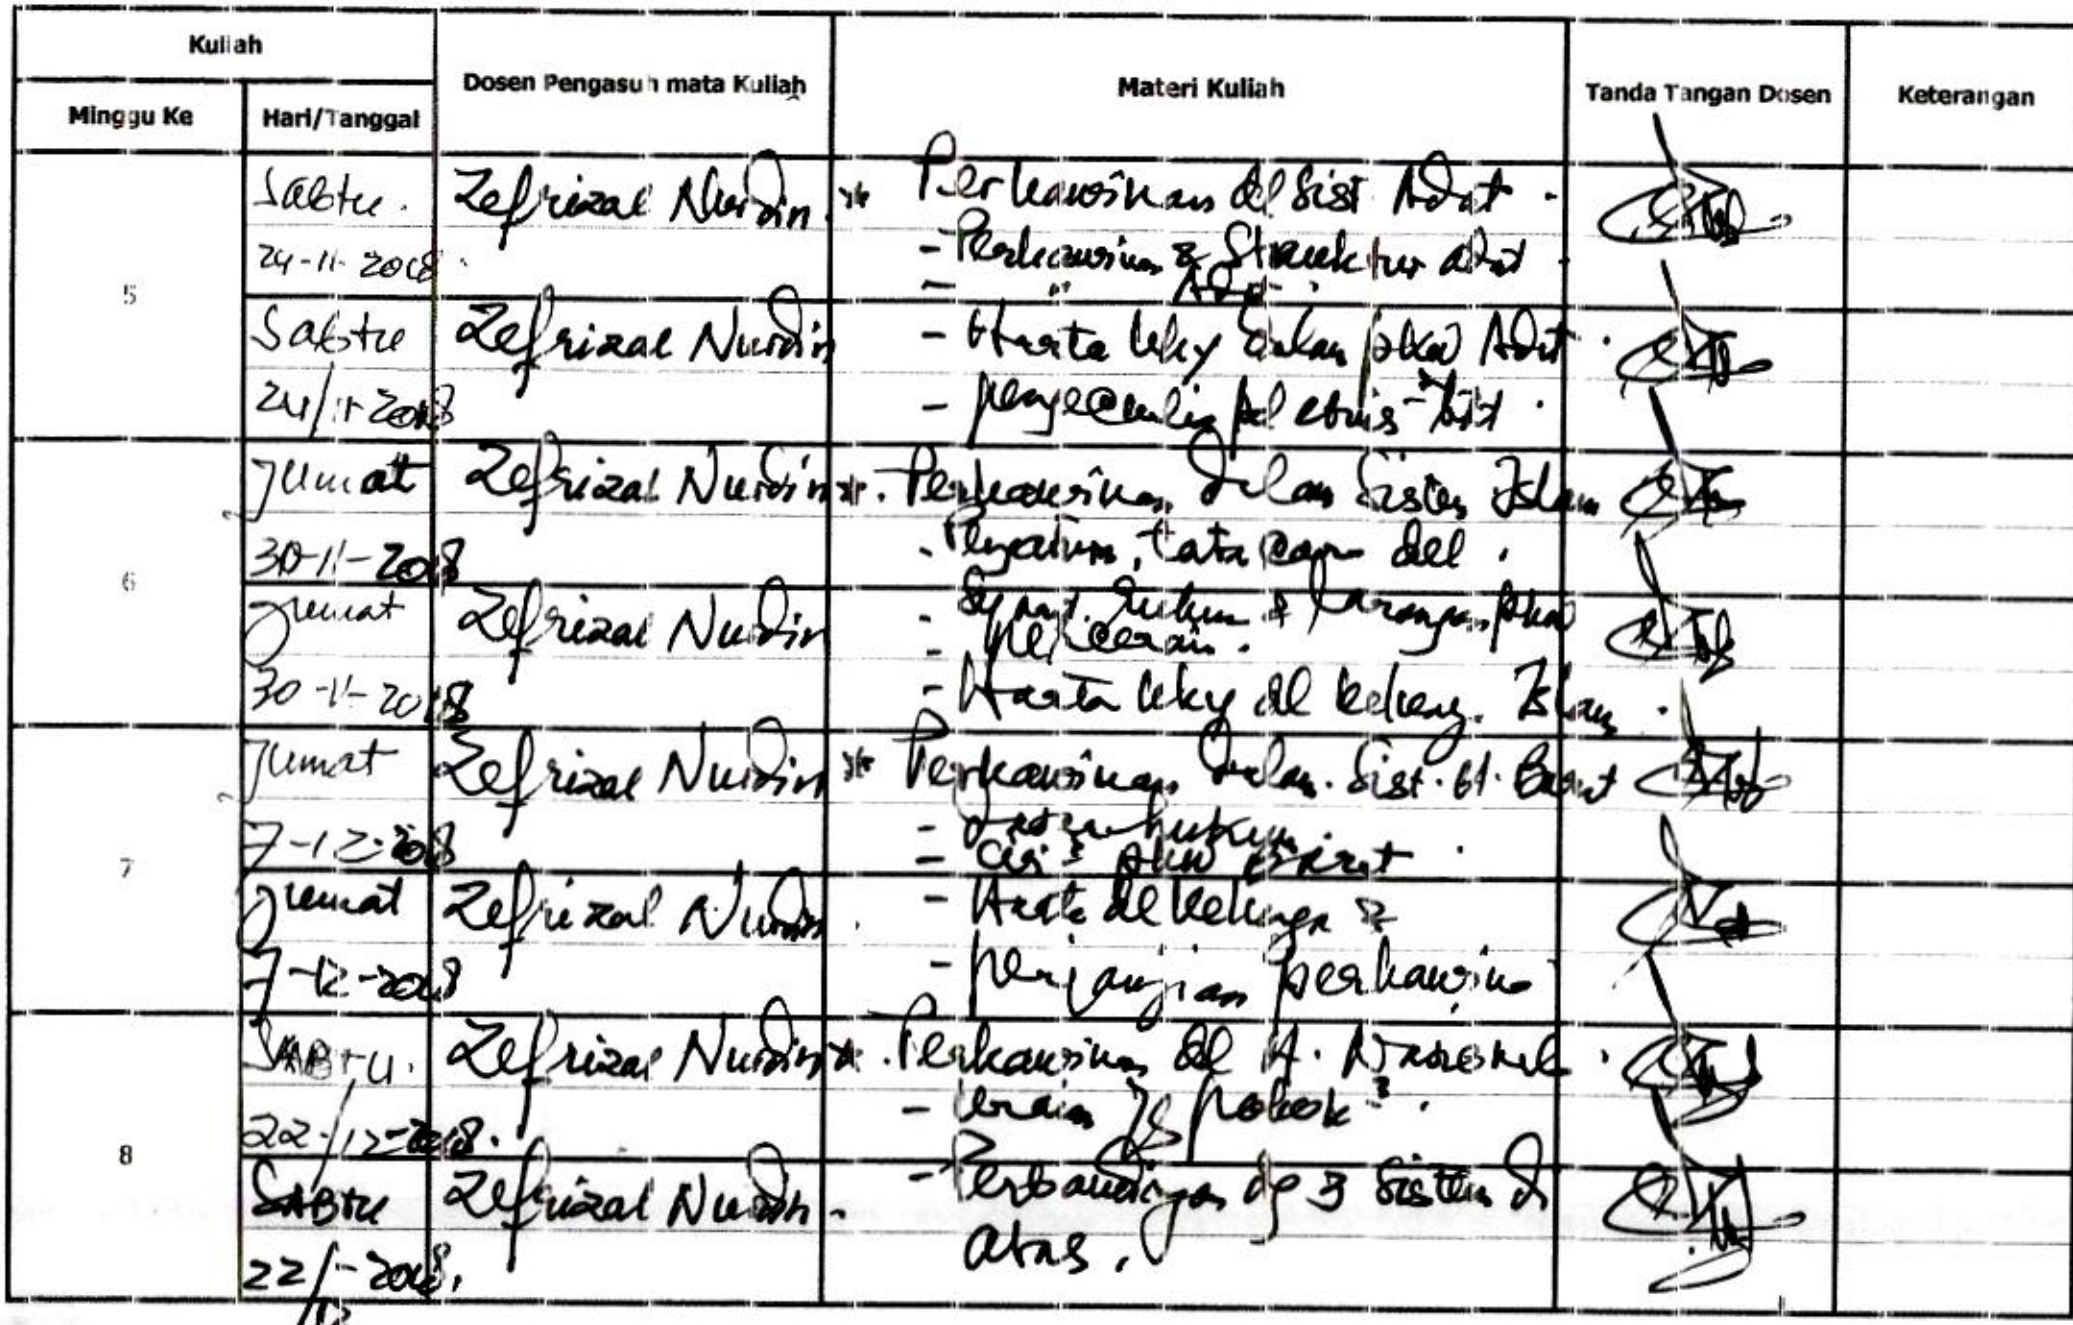 Kuliah
Dosen Pengasuh mata Kuliah
Materi Kuliah
Tanda Tangan Dosen
Keterangan
Minggu Ke
Hari/Tanggal
5
Sabtu.
24-11-2018
Zefrizal Nurdin
* Perkawinan dl Sist Adat.
- Perkawinan & Struktur adat
- " Adat
Sabtu
24/11 2018
Zefrizal Nurdin
- Harta Adat
-
6
Jumat
30-11-2018
Zefrizal Nurdin
* Perkawinan dalam Sistem Islam
tata cara
Jumat
30-11-2018
Zefrizal Nurdin
- Syarat, Rukun & larangan
- perceraian.
- Harta dl Islam
7
Jumat
7-12-2018
Zefrizal Nurdin
* Perkawinan dalam Sist. H. Barat
- Dasar hukum
-
Jumat
7-12-2018
Zefrizal Nurdin
- Harta dl keluarga &
- perjanjian perkawinan
8
SABTU.
22-12-2018.
Zefrizal Nurdin
* Perkawinan dl H. Nasional
- pokok²
SABTU
22/-2018,
12
Zefrizal Nurdin
- Perbandingan 3 Sistem di
atas.